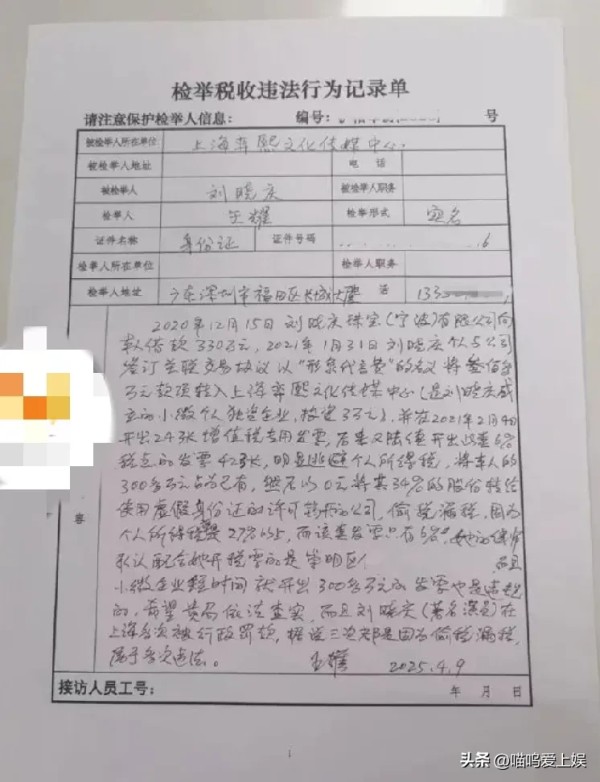 检举税收违法行为记录单
请注意保护检举人信息: 编号: 号
被检举人所在单位 上海弈熙文化传媒中心
被检举人地址 电话
被检举人 刘晓庆 被检举人职务
检举人 王耀 检举形式 实名
证件名称 身份证 证件号码 6
检举人所在单位 检举人职务
检举人地址 广东深圳市福田区长城大厦 话 133
2020年12月15日刘晓庆珠宝(宁波)有限公司向
款借款330万元,2021年1月31日刘晓庆个人与公司
签订关联交易协议以“形象代言费”的名义将叁佰
万元款项转入上海弈熙文化传媒中心(是刘晓庆成
立的小微个人独资企业,核定3万元),并在2021年2月4日
开出24张增值税专用发票,后来又陆续开出
税点的发票42张,明显逃避个人所得税,将本人的
300多万元占为己有,然后以0元将其34%的股份转给
使用虚假身份证的许可 的公司,偷税漏税,因为
个人所得税 是27%以上,而该类发票只有 她的
承认配合她开税票的是崇明区 而且
小微企业短时间就开出300多万元的发票也是违规
的,希望贵局依法查实,而且刘晓庆(著名演员)在
上海多次被行政罚款,据说三次都是因为偷税漏税,
属于多次违法。 王耀 2025.4.9
容
接访人员工号: 年 月 日
1
头条 @喵呜爱上娱